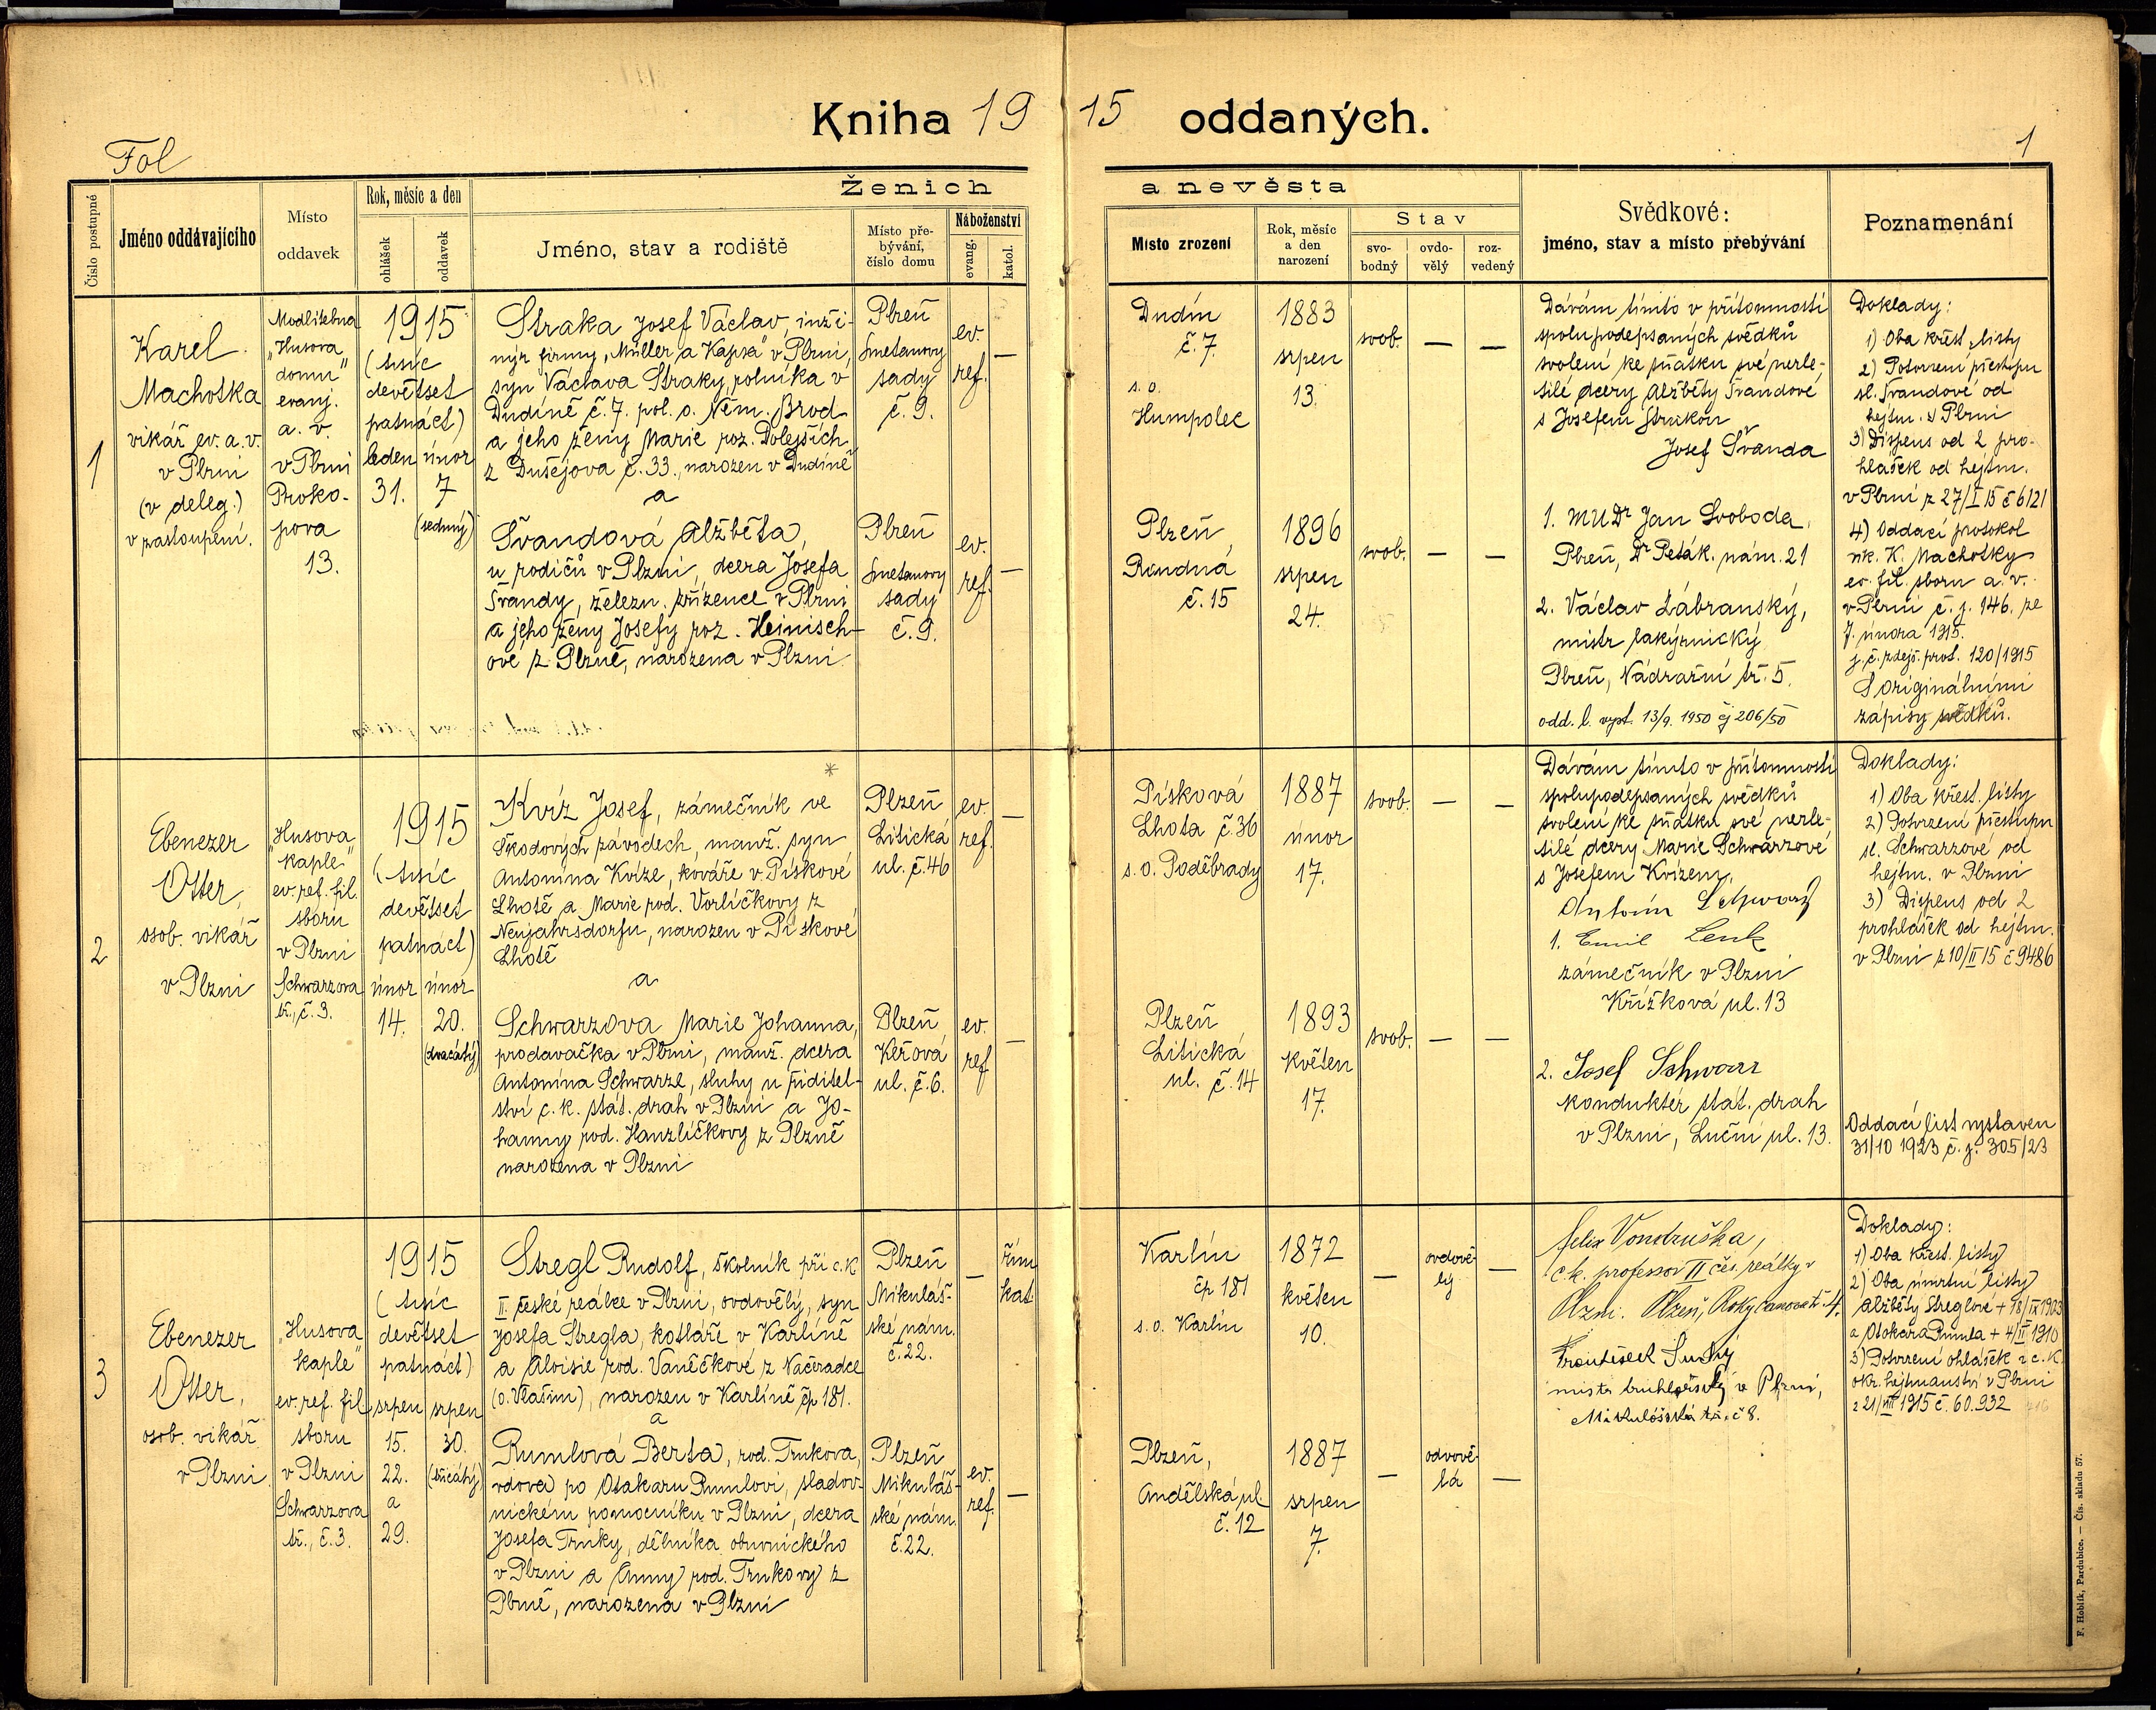 Kniha 1915 oddaných.
Fol
1
Číslo postupné
Jméno oddávajícího
Místo
oddavek
Rok, měsíc a den
ohlášek
oddavek
Ženich
Jméno, stav a rodiště
Místo pře-
bývání,
číslo domu
Náboženství
evang.
katol.
a nevěsta
Místo zrození
Rok, měsíc
a den
narození
Stav
svo-
bodný
ovdo-
vělý
roz-
vedený
Svědkové:
jméno, stav a místo přebývání
Poznamenání
1
Karel
Machotka
vikář ev. a. v.
v Plzni
(v deleg.)
v zastoupení.
Modlitebna
„Husova
domu"
evanj.
a. v.
v Plzni
Proko-
pova
13.
1915
(tisíc
devětset
patnáct)
leden
31.
únor
7
(sedmý)
Straka Josef Václav, inži-
nýr firmy „Müller a Kapsa" v Plzni,
syn Václava Straky, rolníka v
Dudíně č. 7. pol. o. Něm. Brod
a jeho ženy Marie roz. Dolejších
z Dušejova č. 33., narozen v Dudíně
a
Švandová Alžběta,
u rodičů v Plzni, dcera Josefa
Švandy, železn. zřízence v Plzni
a jeho ženy Josefy roz. Heinisch-
ové z Plzně, narozena v Plzni
Plzeň
Smetanovy
sady
č. 9.
ev.
ref.
—
Plzeň
Smetanovy
sady
č. 9.
ev.
ref.
—
Dudín
č. 7.
s. o.
Humpolec
1883
srpen
13.
svob. — —
Plzeň
Roudná
č. 15
1896
srpen
24.
svob. — —
Dávám tímto v přítomnosti
spolupodepsaných svědků
svolení ke sňatku své nezle-
tilé dcery Alžběty Švandové
s Josefem Strakou
Josef Švanda
1. MUDr Jan Svoboda,
Plzeň, Dr Peták. nám. 21
2. Václav Zábranský,
mistr lakýrnický
Plzeň, Nádražní tř. 5.
odd. l. vyst. 13/9. 1950 čj 206/50
Doklady:
1) Oba křest. listy
2) Potvrzení přestupu
sl. Švandové od
hejtm. v Plzni
3) Dispens od 2 pro-
hlášek od hejtm.
v Plzni z 27/I 15 č 6121
4) Oddací protokol
vik. K. Machotky
ev. fil. sboru a. v.
v Plzni č. j. 146. ze
7. února 1915.
j. č. zdejš. prot. 120/1915
S originálními
zápisy svědků.
2
Ebenezer
Otter,
osob. vikář
v Plzni
„Husova
kaple"
ev. ref. fil.
sboru
v Plzni
Schwarzova
tř., č. 3.
1915
(tisíc
devětset
patnáct)
únor
14.
únor
20.
(dvacátý)
*
Kvíz Josef, zámečník ve
Škodových závodech, manž. syn
Antonína Kvíze, kováře v Pískové
Lhotě a Marie rod. Vorlíčkovy z
Neujahrsdorfu, narozen v Pískové
Lhotě
a
Schwarzova Marie Johanna,
prodavačka v Plzni, manž. dcera
Antonína Schwarze, sluhy u ředitel-
ství c. k. stát. drah v Plzni a Jo-
hanny rod. Hanzlíčkovy z Plzně
narozena v Plzni
Plzeň
Litická
ul. č. 46
ev.
ref.
—
Plzeň
Keřová
ul. č. 6.
ev.
ref
—
Písková
Lhota č. 36
s. o. Poděbrady
1887
únor
17.
svob. — —
Plzeň
Litická
ul. č. 14
1893
květen
17.
svob. — —
Dávám tímto v přítomnosti
spolupodepsaných svědků
svolení ke sňatku své nezle-
tilé dcery Marie Schwarzové
s Josefem Kvízem.
Antonín Schwarz
1. Emil Lenk
zámečník v Plzni
Křížková ul. 13
2. Josef Schwarz
konduktér stát. drah
v Plzni, Luční ul. 13.
Doklady:
1) Oba křest. listy
2) Potvrzení přestupu
sl. Schwarzové od
hejtm. v Plzni
3) Dispens od 2
prohlášek od hejtm.
v Plzni z 10/II 15 č 9486
Oddací list vystaven
31/10 1923 č. j. 305/23
3
Ebenezer
Otter,
osob. vikář
v Plzni
„Husova
kaple"
ev. ref. fil
sboru
v Plzni
Schwarzova
tř., č. 3.
1915
(tisíc
devětset
patnáct)
srpen
15.
22.
a
29.
srpen
30.
(třicátý)
Stregl Rudolf, školník při c. k
II. české reálce v Plzni, ovdovělý, syn
Josefa Stregla, kotláře v Karlíně
a Aloisie rod. Vaněčkové z Načeradce
(o. Vlašim), narozen v Karlíně čp 181.
a
Rumlová Berta, rod. Trnkova,
vdova po Otakaru Rumlovi, sladov-
nickém pomocníku v Plzni, dcera
Josefa Trnky, dělníka obuvnického
v Plzni a Anny rod. Trnkovy z
Plzně, narozena v Plzni
Plzeň
Mikuláš-
ské nám.
č. 22.
—
řím
kat
Plzeň
Mikuláš-
ské nám.
č. 22.
ev.
ref.
—
Karlín
čp 181
s. o. Karlín
1872
květen
10.
—
ovdově-
lý
—
Plzeň,
Andělská ul.
č. 12
1887
srpen
7.
—
odvově-
lá
—
Felix Vondruška,
c. k. professor II čes. reálky v
Plzni. Plzeň, Rokycanova tř. 4.
František Suchý
mistr truhlářský v Plzni,
Mikulášská tř. č 8.
Doklady:
1) Oba křest. listy
2) Oba úmrtní listy
Alžběty Streglové + 18/IX 1903
a Otokara Rumla + 4/II 1910
3) Potvrzení ohlášek z c. k.
okr. hejtmanství v Plzni
z 21/VIII 1915 č. 60.932
F. Hoblík, Pardubice. — Čís. skladu 57.